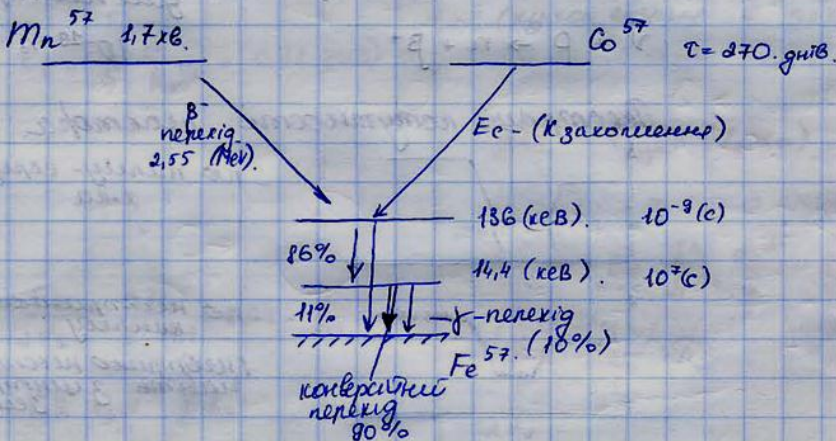 Mn⁵⁷ 1,7 хв.
Co⁵⁷ τ = 270. днів.
β⁻
перехід
2,55 (МеV).
Ec - (K захоплення)
136 (кеВ). 10⁻⁹(с)
86%
14,4 (кеВ). 10⁷(с)
11%
γ-перехід
(10%)
Fe⁵⁷.
конверсійний
перехід
90%